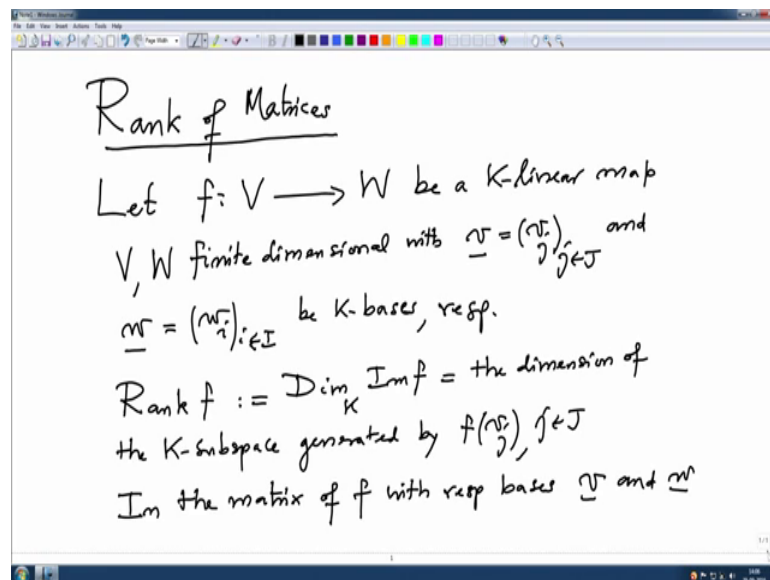 Note1 - Windows Journal
File Edit View Insert Actions Tools Help
Page Width
Rank of Matrices
Let f: V ⟶ W be a K-linear map
V, W finite dimensional with v = (v_j)_{j∈J} and
w = (w_i)_{i∈I} be K-bases, resp.
Rank f := Dim_K Im f = the dimension of
the K-subspace generated by f(v_j), j∈J
In the matrix of f with resp bases v and w
1/1
1